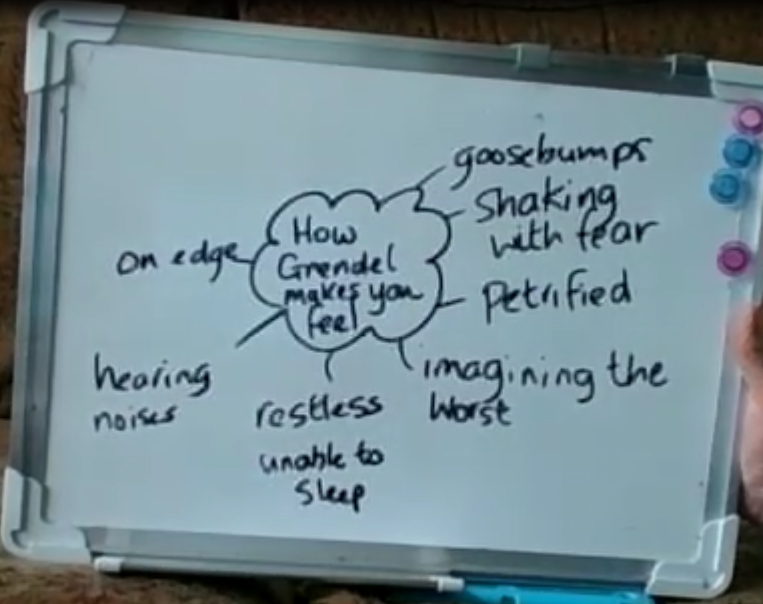 How
Grendel
makes you
feel
goosebumps
shaking
with fear
petrified
imagining the
worst
restless
unable to
sleep
hearing
noises
on edge